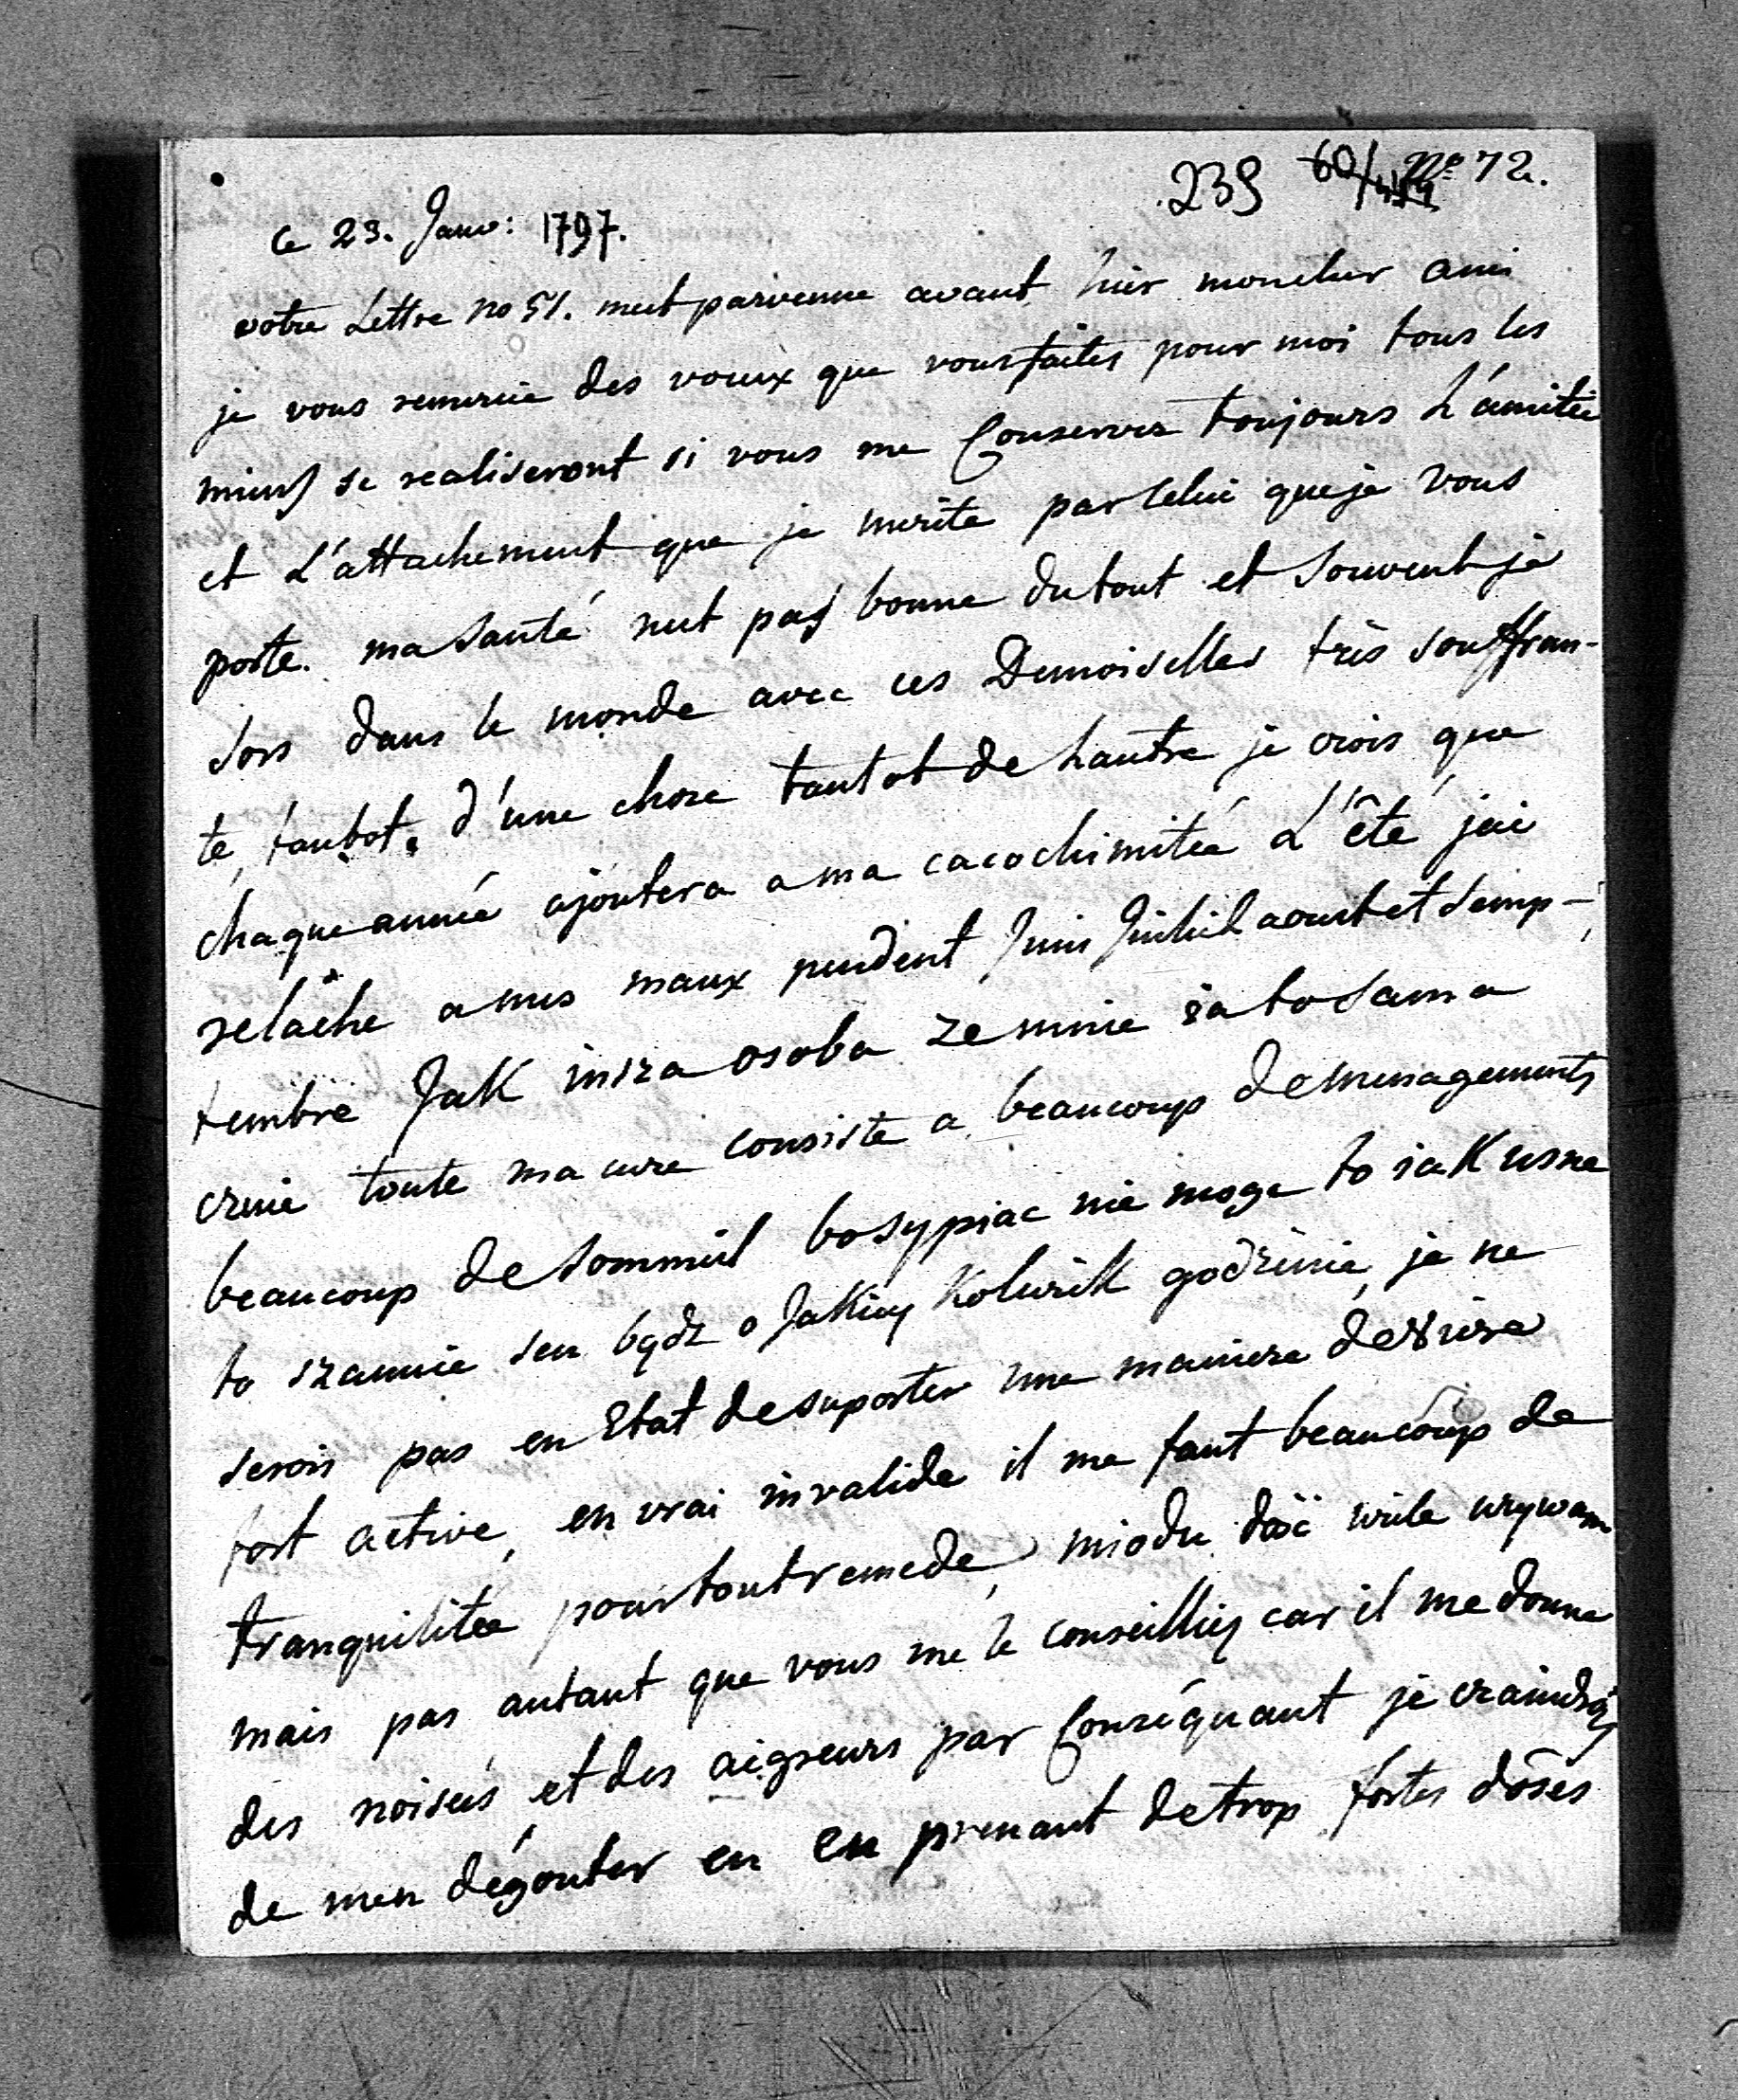 239 60/ No 72.
ce 23. Janv: 1797.
votre Lettre no 51. mest parvenue avant hier moncher ami
je vous remercie des voeux que vous faites pour moi tous les
miens se realiseront si vous me Conservez toujours L'amitée
et L'attachement que je merite par celui que je vous
porte. ma Santé nest pas bonne du tout et Souvent je
sors dans le monde avec ces Demoiselles très souffran-
te, tantot, d'une chose tantot de Lautre je crois que
chaque année ajoutera a ma cacochimitée L'été jai
relache a mes maux pendent Juin Juilliel aoust et Semp-
tembre Jak insza osoba ze mnie ia to sama
czuie toute ma cure consiste a beaucoup de menagements
beaucoup de sommeil bo sypiac nie moge to iak usne
to szannie sen bądz o Jakiey Kolwiek godzinie, je ne
serois pas en Etat de suporter une maniere de vivre
fort active, en vrai invalide il me faut beaucoup de
tranquilitée pour tout remede, miodu dość wiele uzywam
mais pas autant que vous me le conseilliez car il me donne
des noiseés et des aigreurs par Conséquant je craindrois
de men dégouter en en prenant de trop fortes dôses